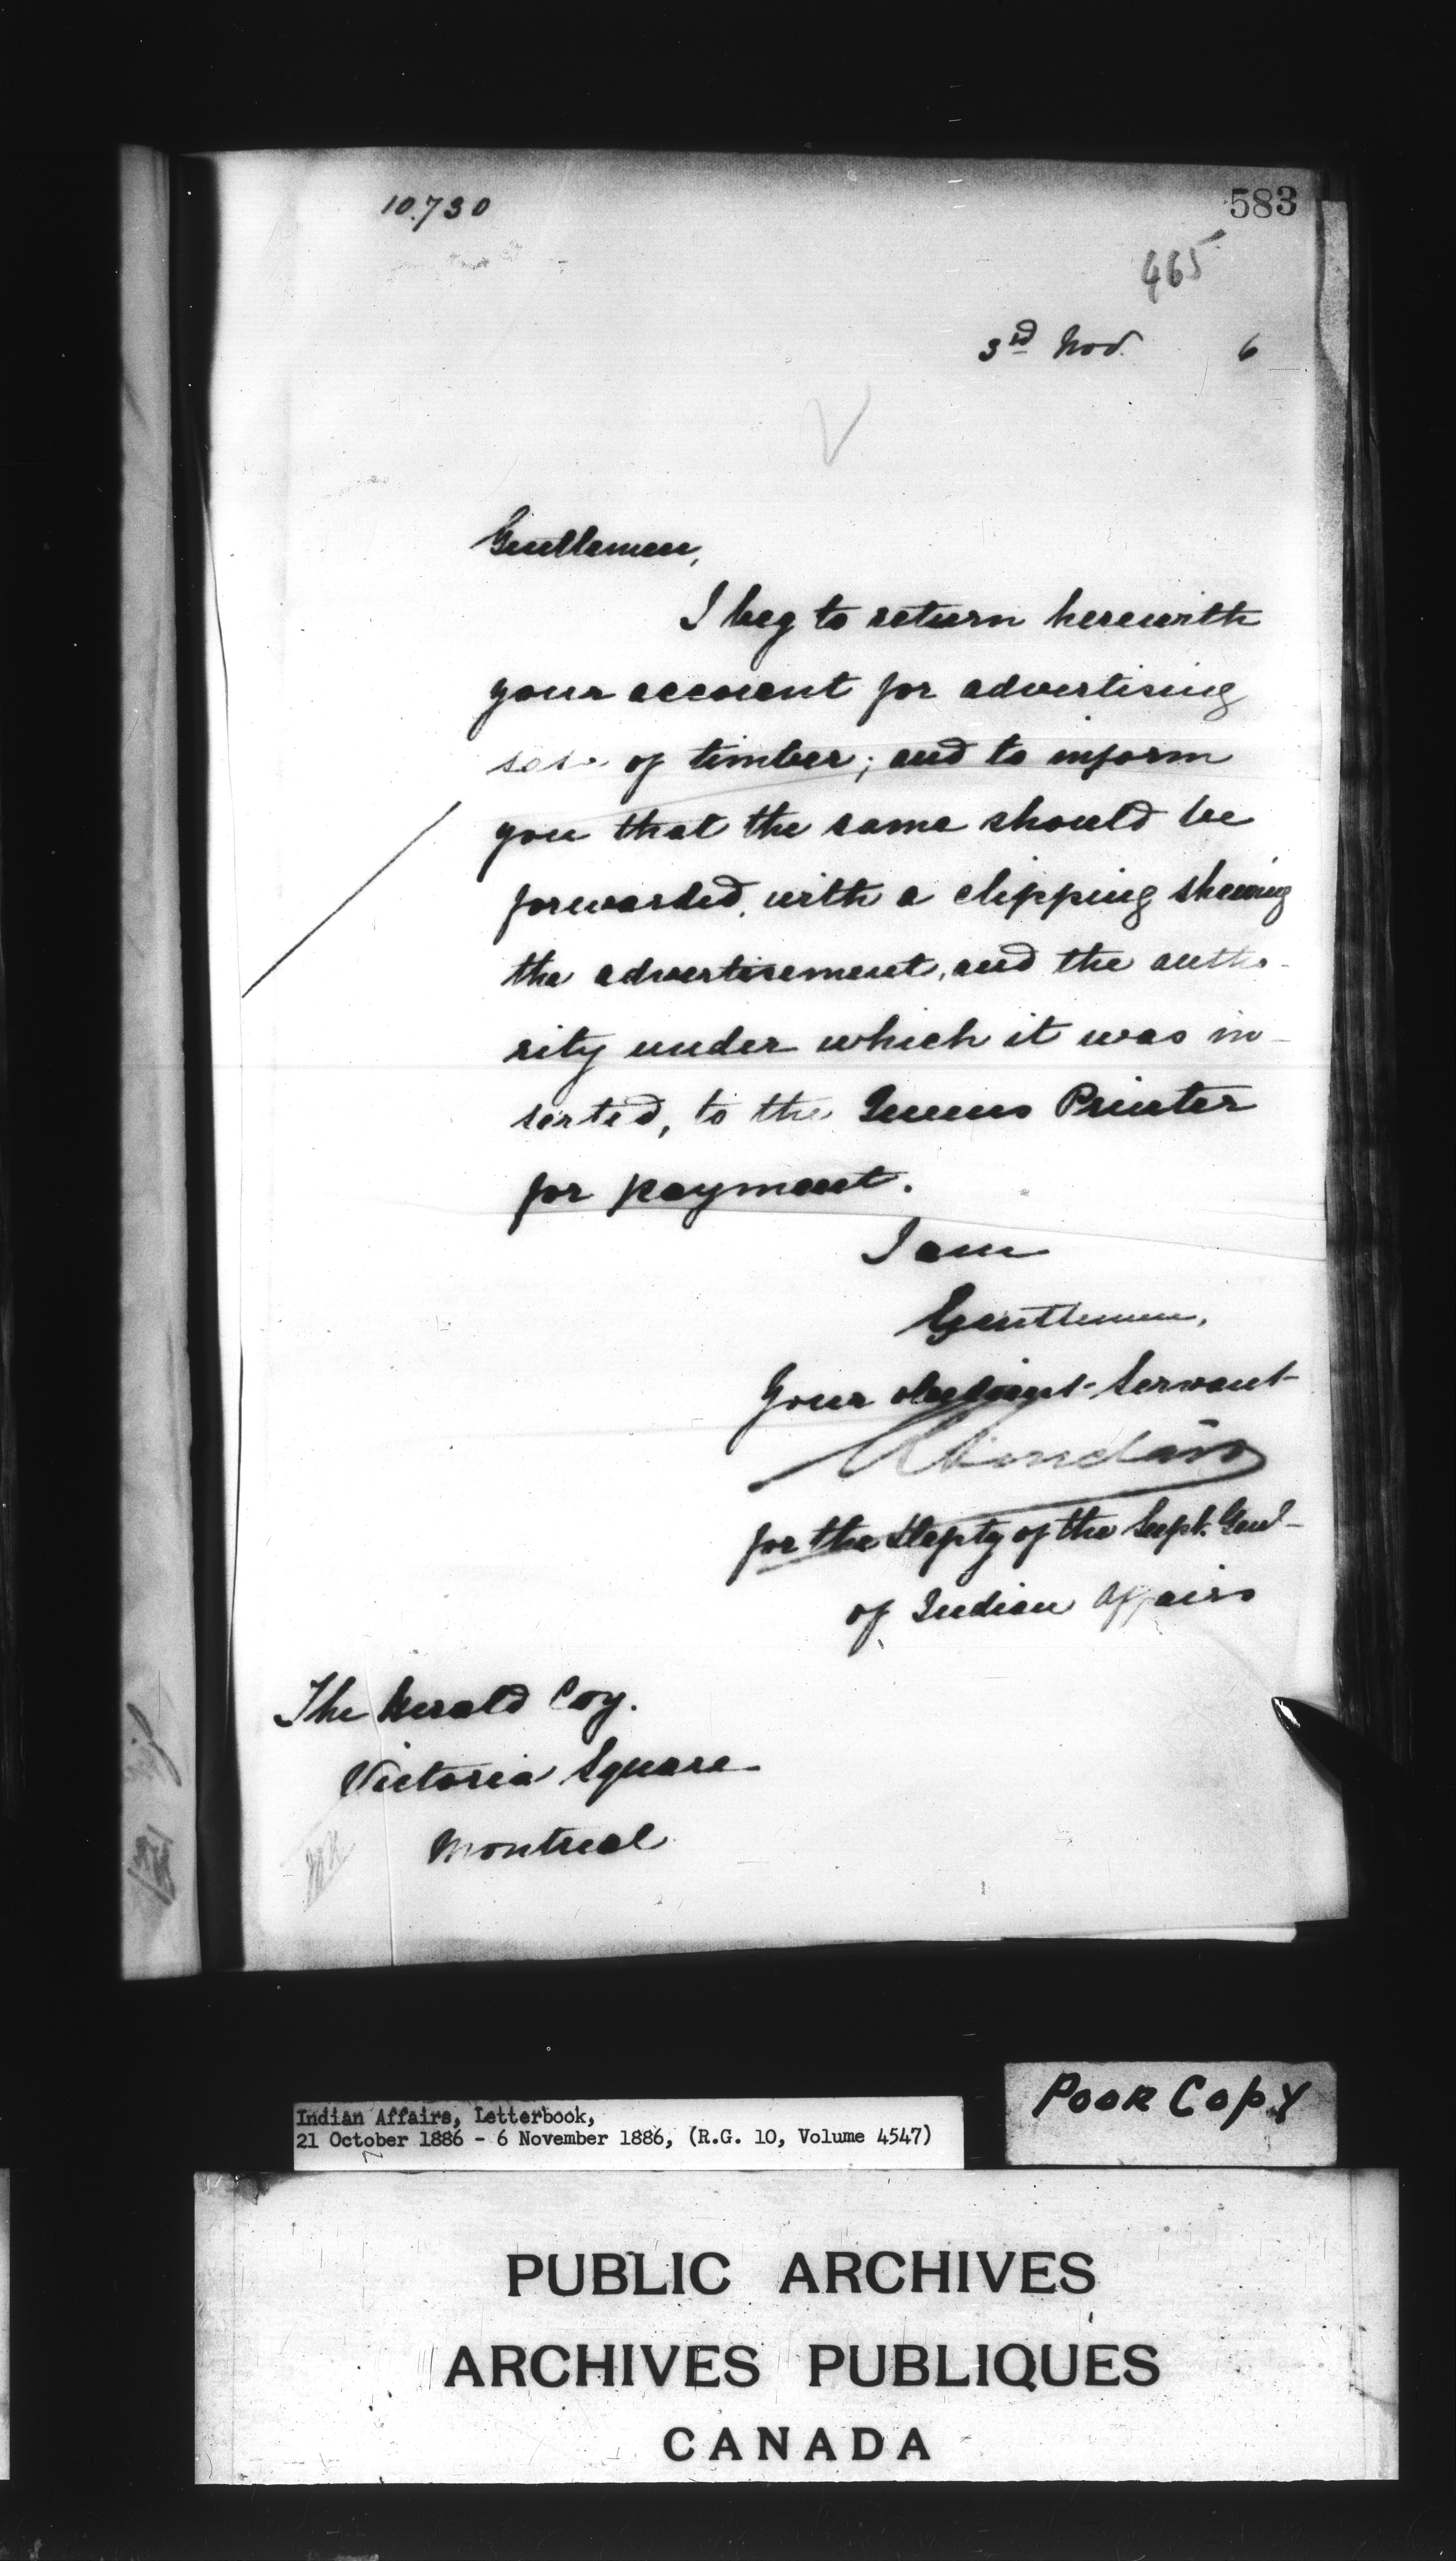 10.730
583
465
3rd Nov. 6
Gentlemen,
I beg to return herewith
your account for advertising
sale of timber; and to inform
you that the same should be
forwarded, with a clipping shewing
the advertisement, and the autho-
rity under which it was in-
serted, to the Queens Printer
for payment.
I am
Gentlemen,
Your obedient Servant
for the Depty of the Supt. Genl
of Indian Affairs
The Herald Coy.
Victoria Square
Montreal
POOR COPY
Indian Affairs, Letterbook,
21 October 1886 - 6 November 1886, (R.G. 10, Volume 4547)
PUBLIC ARCHIVES
ARCHIVES PUBLIQUES
CANADA